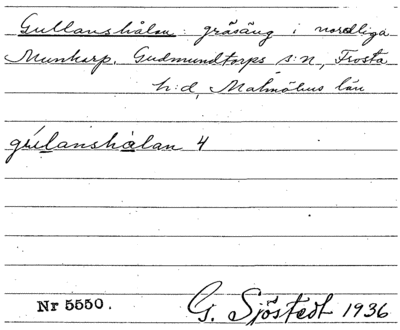 Gullanshålan: gräsäng i nordliga
Munkarp, Gudmundtorps s:n, Frosta
h:d, Malmöhus län
gúlanshålan 4
Nr 5550.
G. Sjöstedt 1936